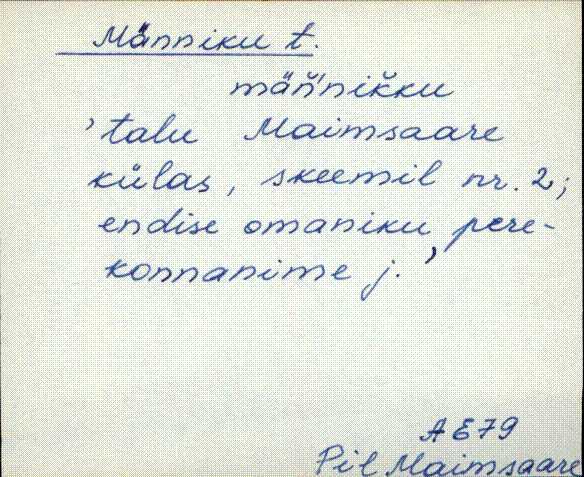 Männiku t.
mäǹ'nikku
'talu Maimsaare
külas, skeemil nr. 2;
endise omaniku pere-
konnanime j.'
A E 79
Pil Maimsaare